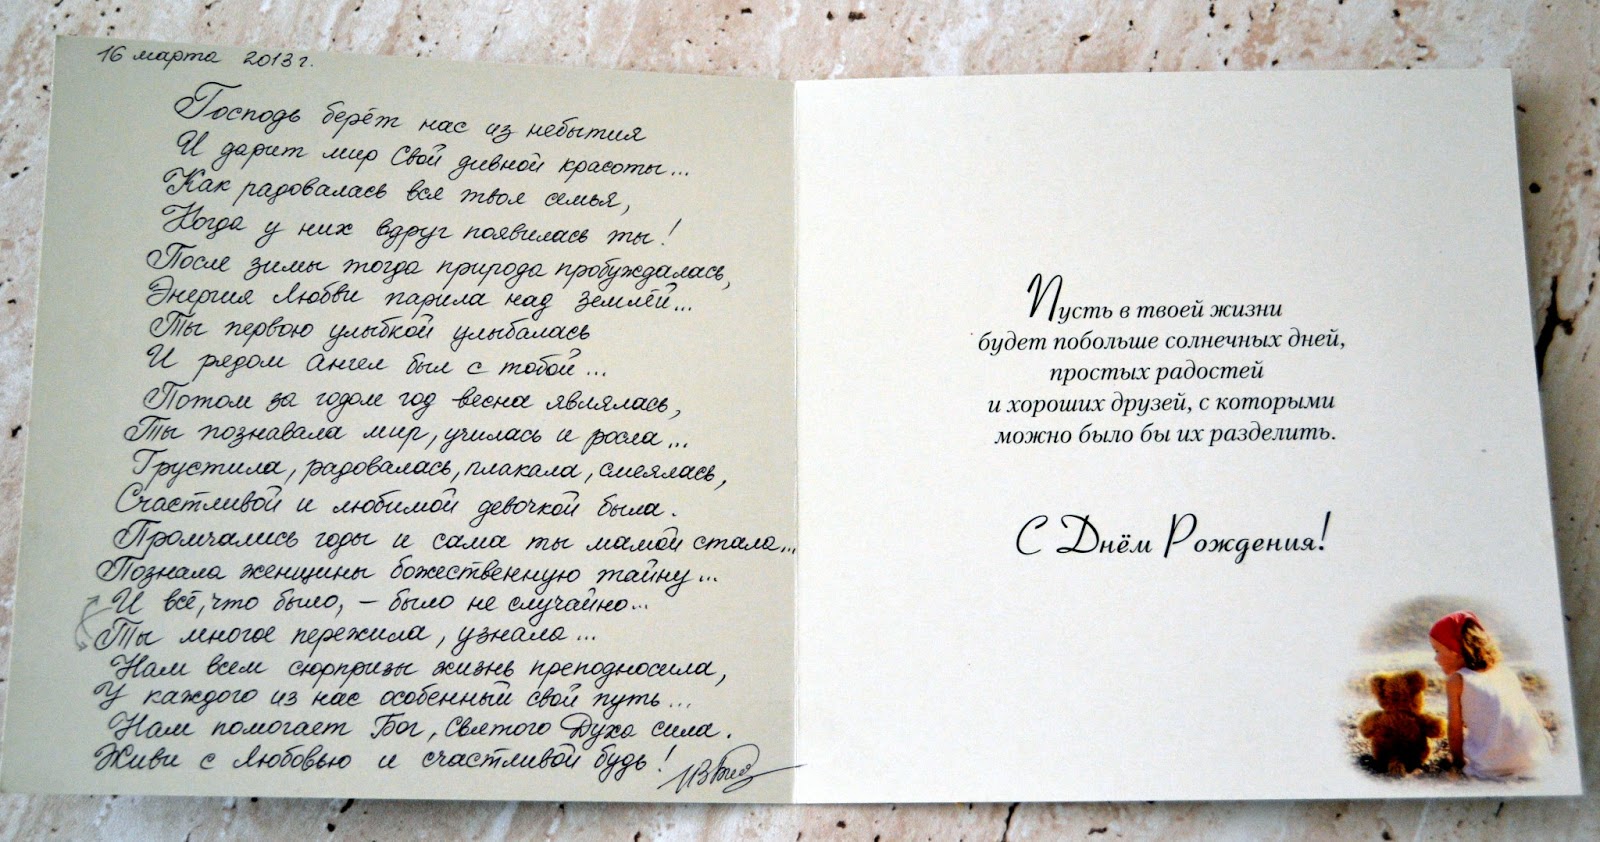 16 марта 2013 г.
Господь берёт нас из небытия
И дарит мир Свой дивной красоты...
Как радовалась вся твоя семья,
Когда у них вдруг появилась ты!
После зимы тогда природа пробуждалась,
Энергия Любви парила над землёй...
Ты первою улыбкой улыбалась
И рядом Ангел был с тобой...
Потом за годом год весна являлась,
Ты познавала мир, училась и росла...
Грустила, радовалась, плакала, смеялась,
Счастливой и любимой девочкой была.
Промчались годы и сама ты мамой стала...
Познала женщины божественную тайну...
И всё, что было, – было не случайно...
Ты многое пережила, узнала...
Нам всем сюрпризы жизнь преподносила,
У каждого из нас особенный свой путь...
Нам помогает Бог, Святого Духа сила.
Живи с Любовью и счастливой будь!
Пусть в твоей жизни
будет побольше солнечных дней,
простых радостей
и хороших друзей, с которыми
можно было бы их разделить.
С Днём Рождения!